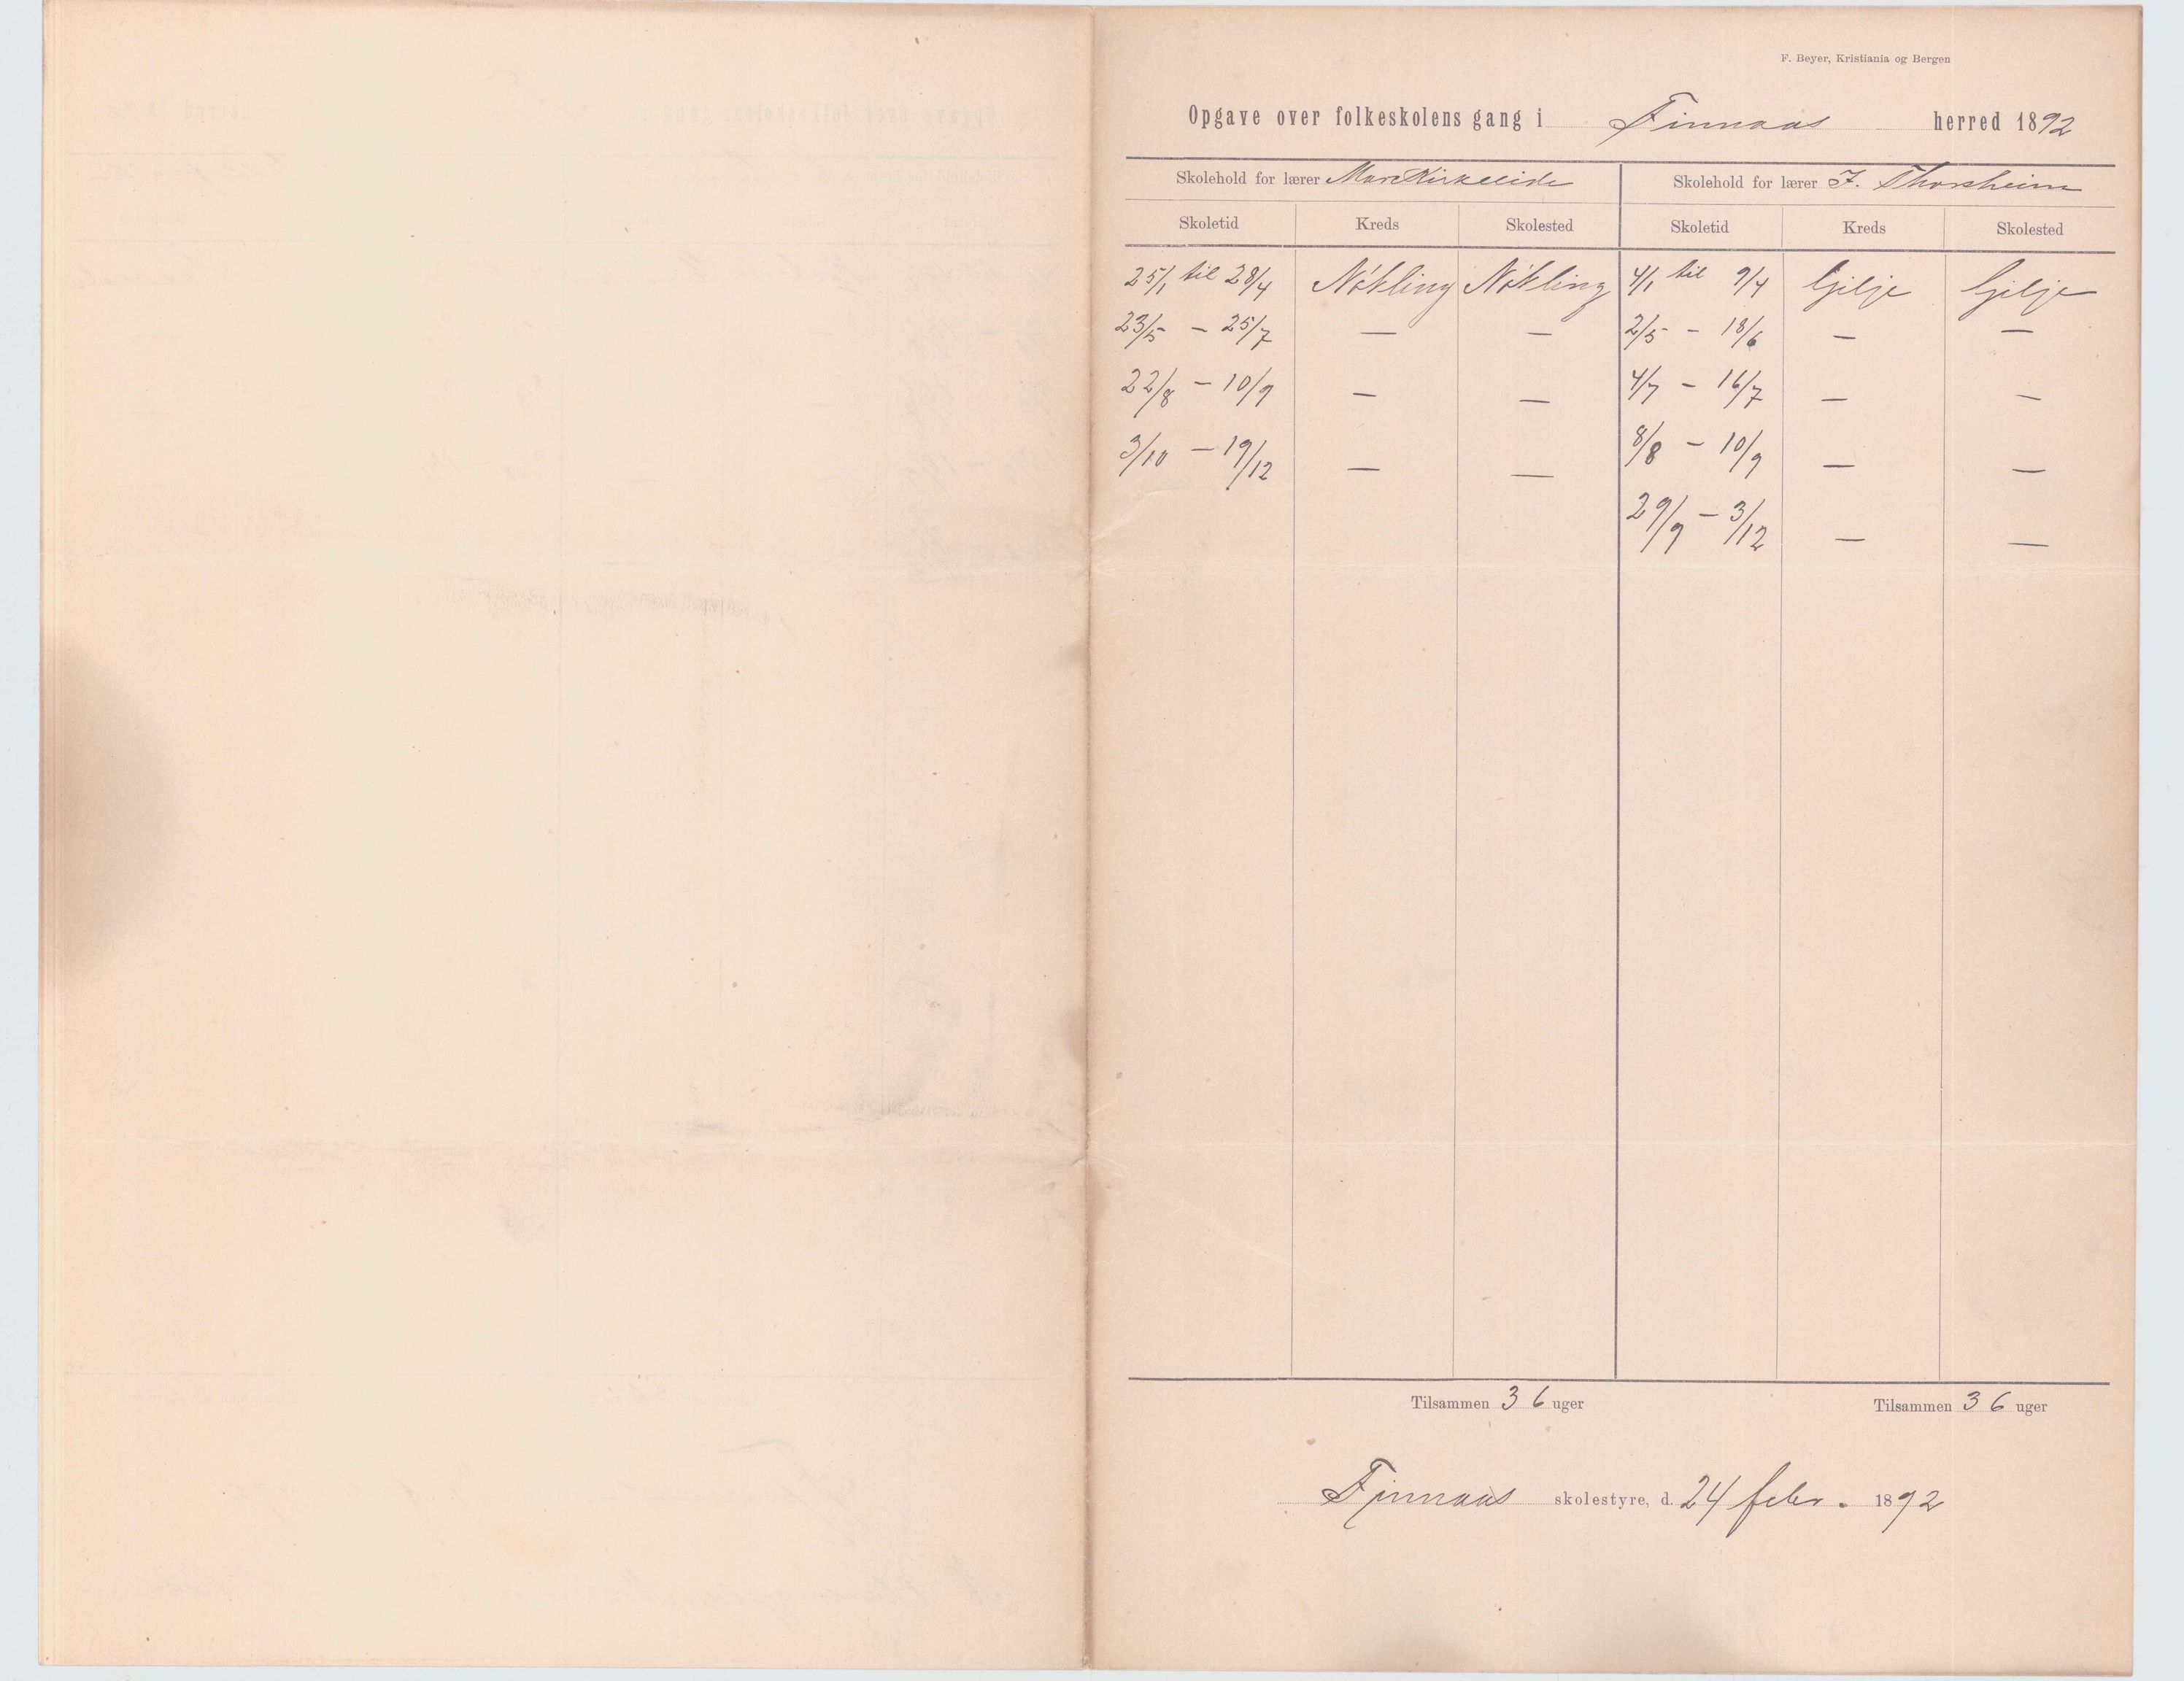 F. Beyer, Kristiania og Bergen
Opgave over folkeskolens gang i Finnaas herred 1892
Skolehold for lærer Mons Kirkeeide Skolehold for lærer J. Thorsheim
Skoletid Kreds Skolested Skoletid Kreds Skolested
25/1 til 28/4 Nókling Nókling 4/1 til 9/4 Gilje Gilje
23/5 - 25/7 — — 2/5 - 18/6 — —
22/8 - 10/9 — — 4/7 - 16/7 — —
3/10 - 19/12 — — 8/8 - 10/9 — —
29/9 - 3/12 — —
Tilsammen 36 uger Tilsammen 36 uger
Finnaas skolestyre, d. 24 febr. 1892